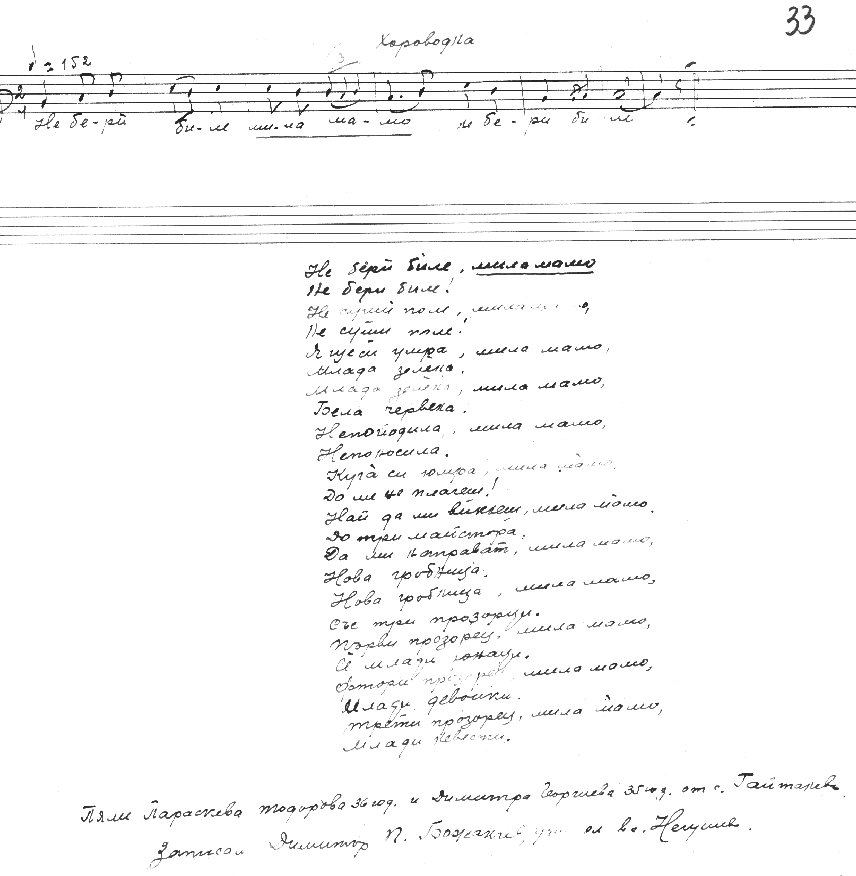 33
Хороводна
♩ = 152
2
4
3
Не бе-ри би-ле ми-ла ма-мо не бе-ри би ле
Не бери биле, мила мамо
Не бери биле!
Не суши поле,
Не суши поле!
Я ще си умра, мила мамо,
Млада зелена.
Млада зелена, мила мамо,
Бела червена.
Непоодила, мила мамо,
Непоносила.
Куга си юмра, мила мамо,
До ми не плачеш!
Най да ми викнеш, мила мамо.
До три майстора.
Да ми направат, мила мамо,
Нова гробница.
Нова гробница, мила мамо,
Със три прозорци.
Първи прозорец, мила мамо,
Се млади юнаци.
Фтори прозорец мила мамо,
Млади девойки.
Трети прозорец, мила мамо,
Млади невести.
Пяли Параскева Тодорова 36 год. и Димитра Георгиева 35 год. от с.
Записал Димитър П.